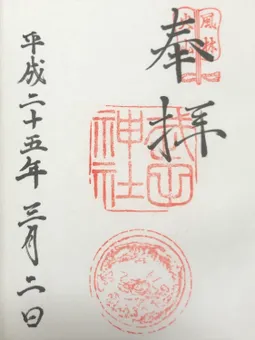 風林火山
奉拝
武田神社
平成二十五年三月二日